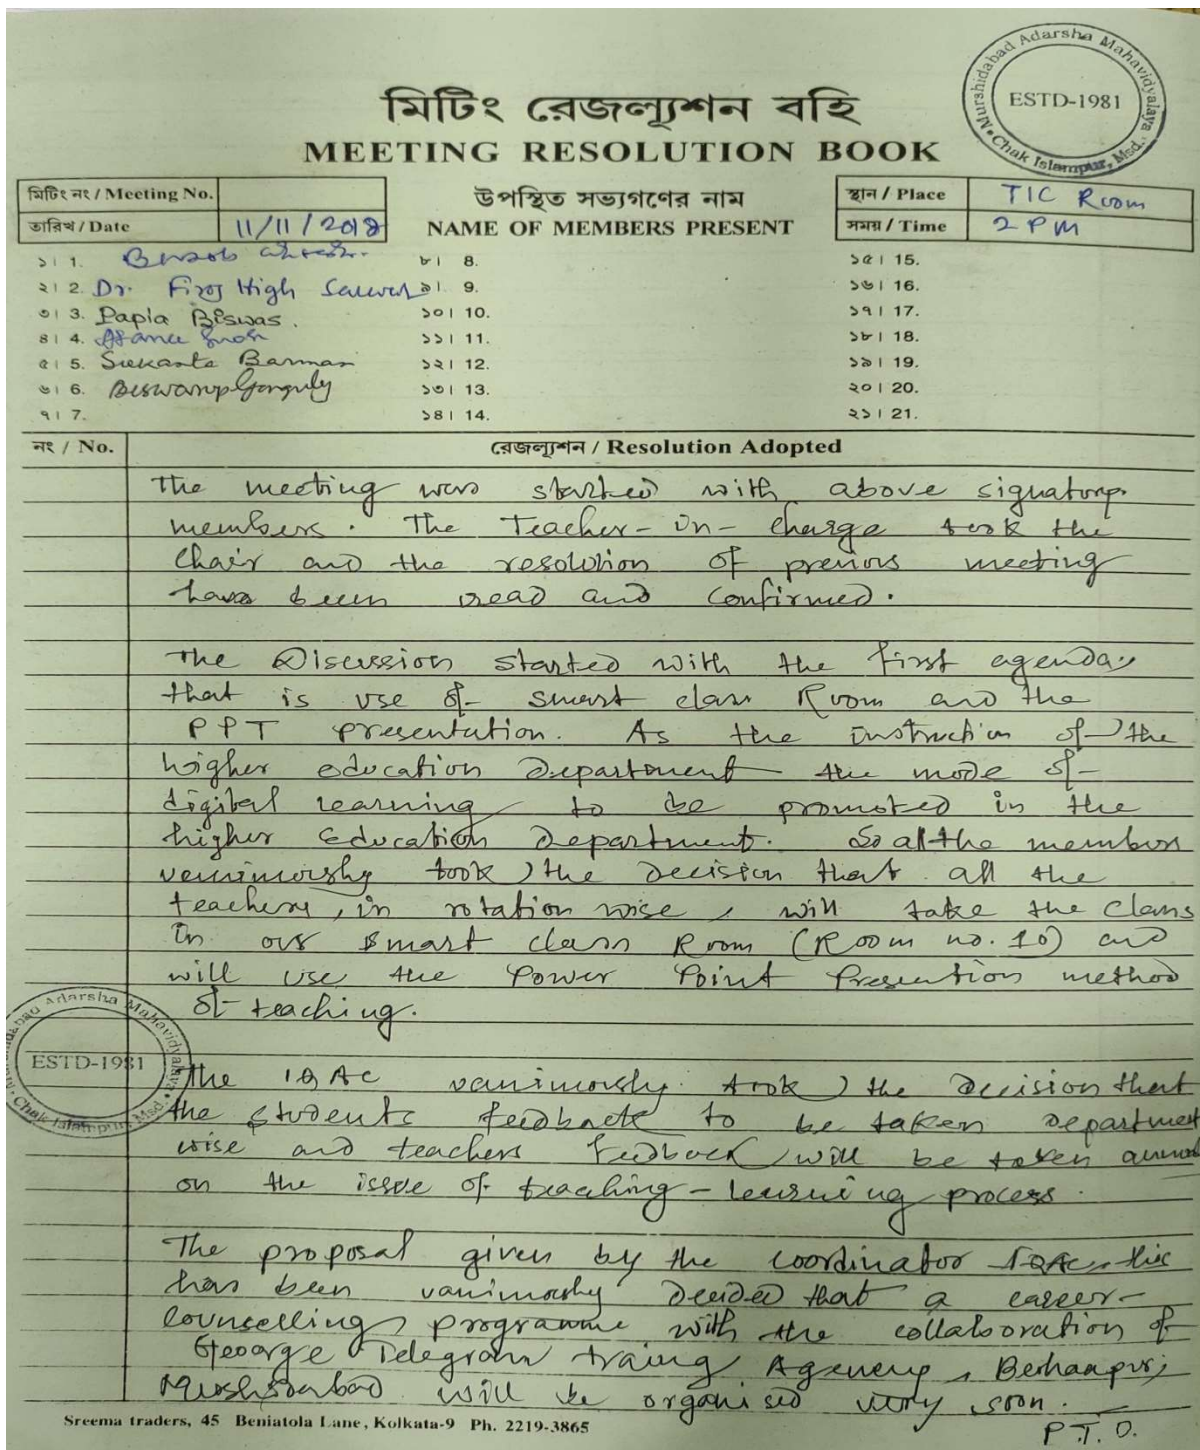 Murshidabad Adarsha Mahavidyalaya
ESTD-1981
Chak Islampur, Msd.
মিটিং রেজল্যুশন বহি
MEETING RESOLUTION BOOK
মিটিং নং / Meeting No.
তারিখ / Date 11/11/2018
উপস্থিত সভ্যগণের নাম
NAME OF MEMBERS PRESENT
স্থান / Place TIC Room
সময় / Time 2 PM
১। 1.
২। 2. Dr. Firoj High Sarwar
৩। 3. Papia Biswas.
৪। 4.
৫। 5. Sukanta Barman
৬। 6. Biswarup Ganguly
৭। 7.
৮। 8.
৯। 9.
১০। 10.
১১। 11.
১২। 12.
১৩। 13.
১৪। 14.
১৫। 15.
১৬। 16.
১৭। 17.
১৮। 18.
১৯। 19.
২০। 20.
২১। 21.
নং / No. রেজল্যুশন / Resolution Adopted
The meeting was started with above signatory
members. The Teacher-in-charge took the
chair and the resolution of previous meeting
have been read and confirmed.
The Discussion started with the first agenda,
that is use of smart class Room and the
PPT presentation. As the instruction of the
higher education Department the mode of
digital learning to be promoted in the
higher education Department. So all the members
vanimously took the decision that all the
teachers, in rotation wise, will take the class
in our smart class Room (Room no. 10) and
will use the Power Point Presention method
of teaching.
Murshidabad Adarsha Mahavidyalaya
ESTD-1981
Chak Islampur, Msd.
The IQAC vanimously took the decision that
the students feedback to be taken department
wise and teachers feedback will be taken annual
on the issue of teaching-learning process.
The proposal given by the coordinator IQAC, this
has been vanimously decided that a career-
counselling programme with the collaboration of
George Telegram traing Agency, Berhampur,
Murshidabad will be organised very soon.
P.T.O.
Sreema traders, 45 Beniatola Lane, Kolkata-9 Ph. 2219-3865